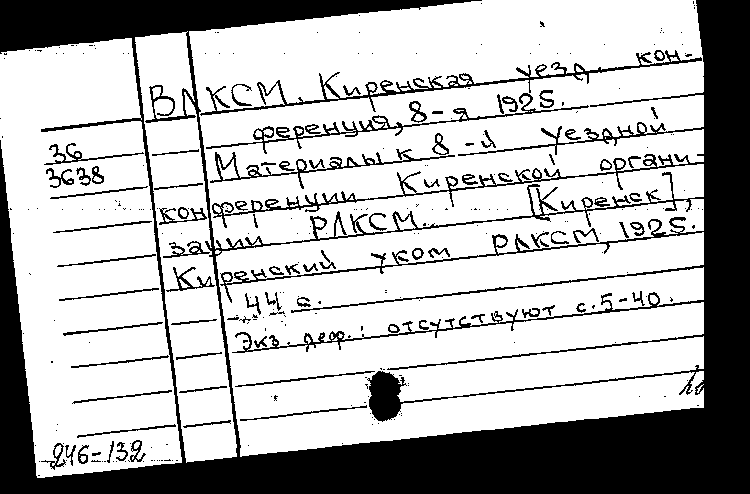 ВЛКСМ. Киренская уезд. кон-
ференция, 8-я. 1925.
36
3638
Материалы к 8-й уездной
конференции Киренской органи-
зации РЛКСМ.. [Киренск],
Киренский уком РЛКСМ, 1925.
44 с.
Экз. деф.: отсутствуют с. 5-40.
246-132